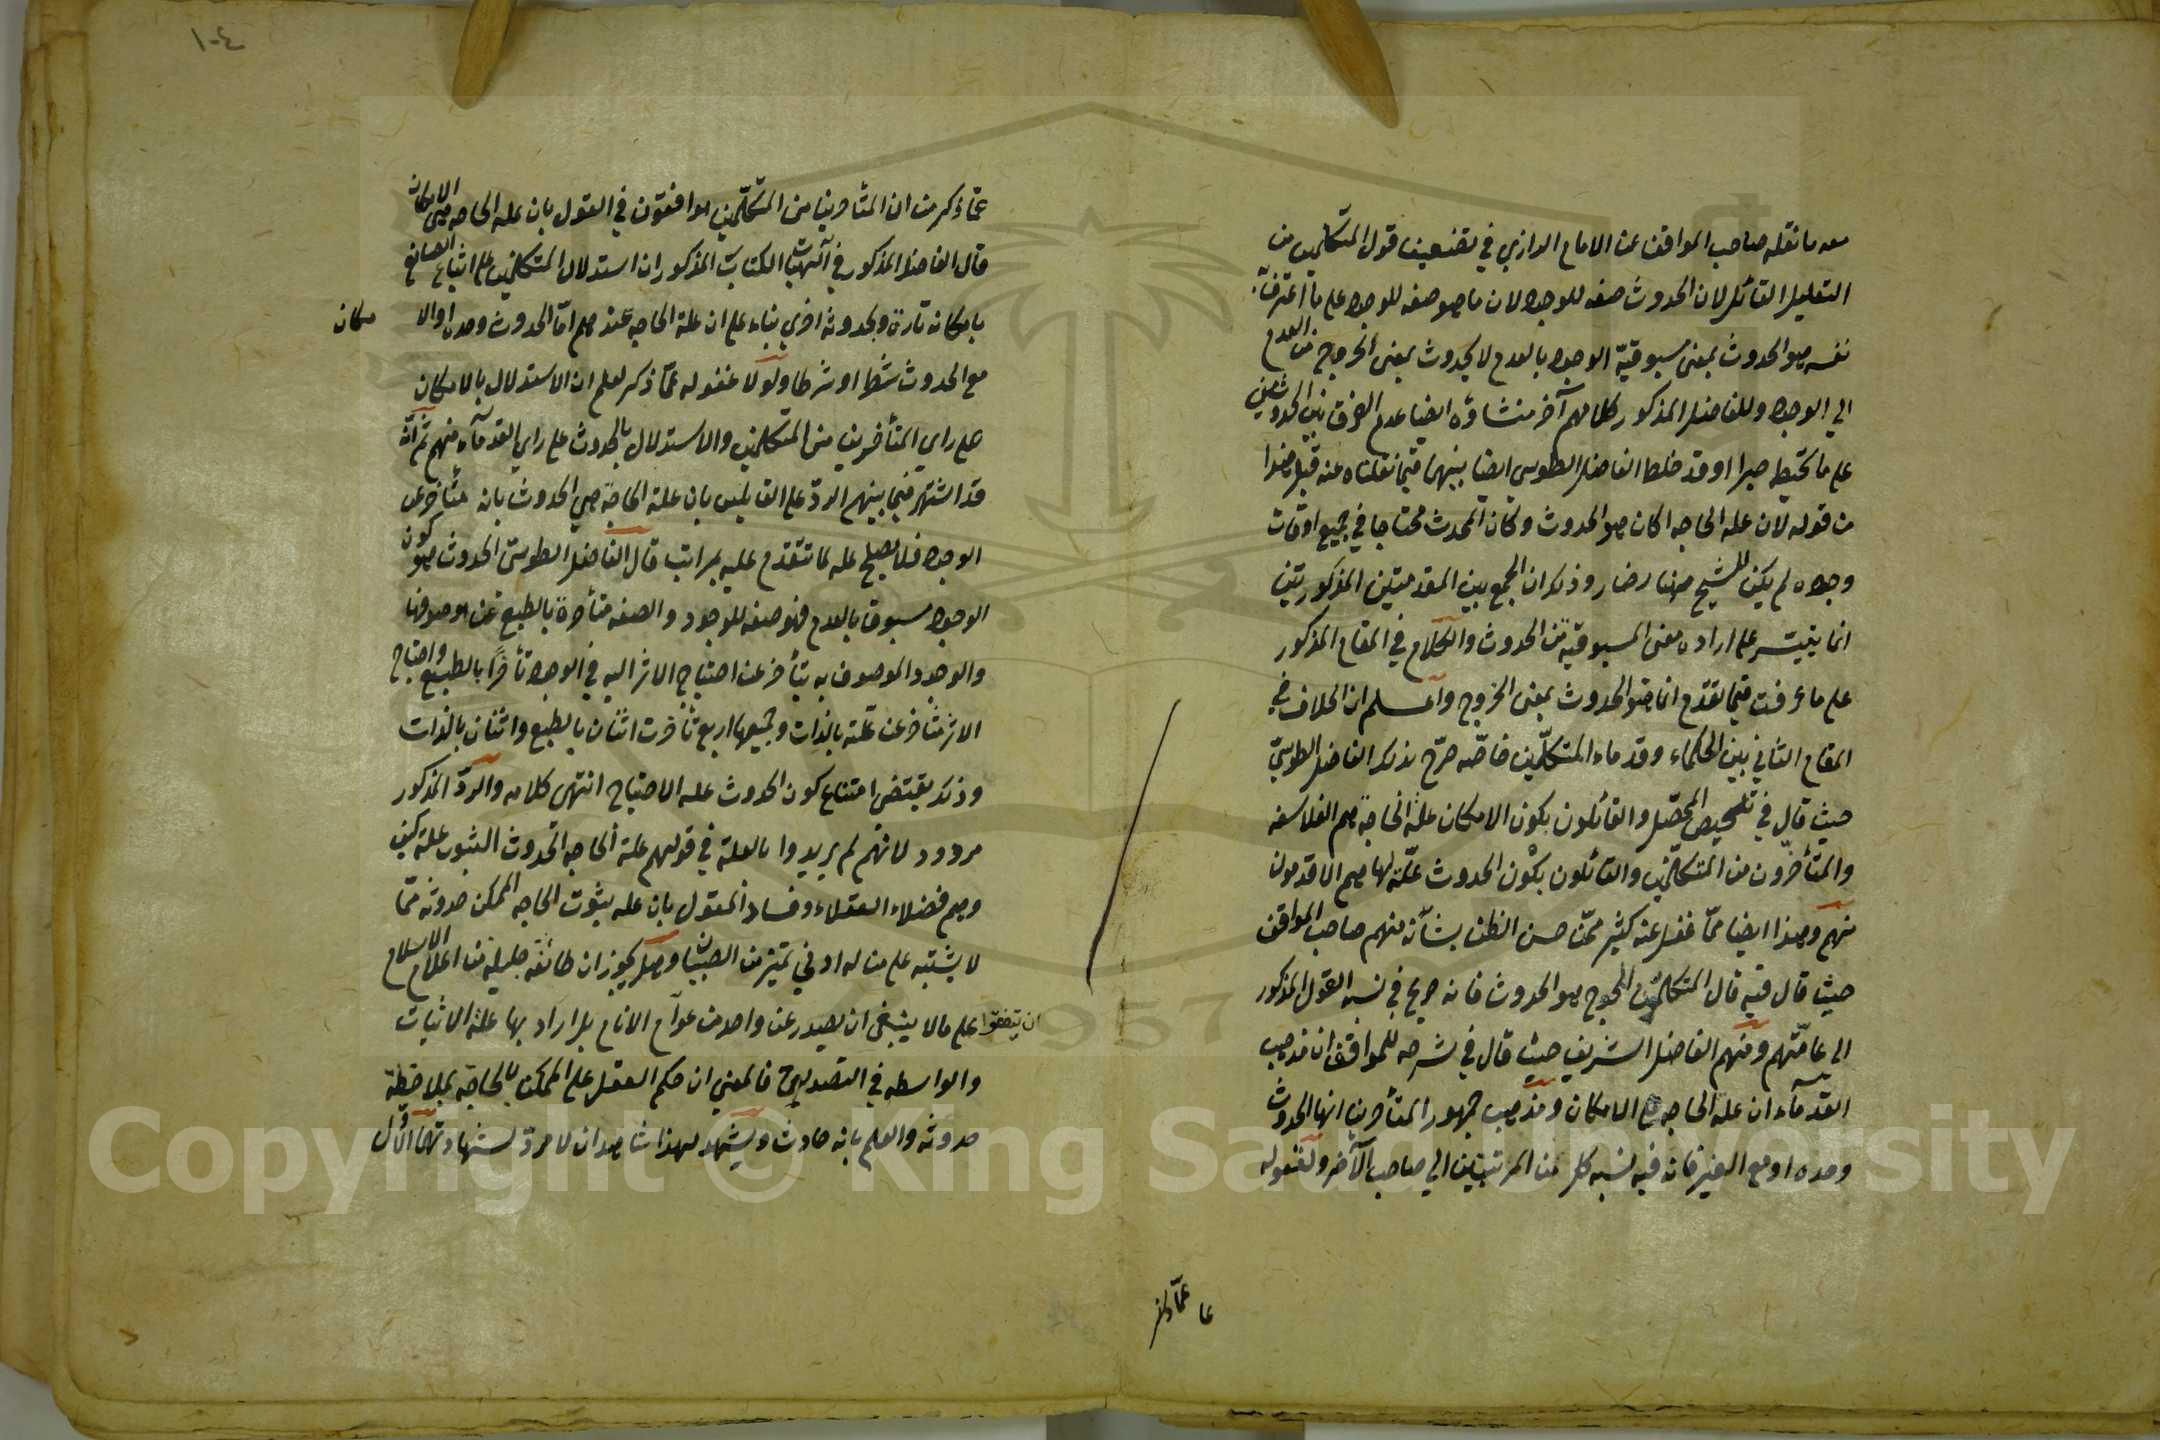 معه ما نقله صاحب المواقف عن الامام الرازي في تضعيف قول المتكلمين من
التعليل القائل لان الحدوث صفه للوجود لان ما هو صفه للوجود على ما اعترف به
نفسه هو الحدوث بمعنى مسبوقية الوجود بالعدم لا الحدوث بمعنى الخروج من العدم
الي الوجود وللفاضل المذكور كلام آخر منشاؤه ايضا عدم الفرق بين الحدوثين
على ما خلط الفاضل الطوسى ايضا بينهما فيما نقلناه عنه قبل هذا
من قوله لان علة الحاجه ا كان هو الحدوث وكان المحدث محتاجا في جميع اوقات
وجوده لم يكن للشيخ ههنا وذلك ان الجمع بين المقدمتين المذكورتين
انما على ارادة معنى المسبوقية من الحدوث والكلام في المقام المذكور
على ما عرفت فيما تقدم انما هو الحدوث بمعنى الخروج واعلم ان الخلاف في
المقام الثاني بين الحكماء وقدماء المتكلمين خاصة صرح بذلك الفاضل الطوسي
حيث قال في تلخيص المحصل والقائلون بكون الامكان علة الحاجة هم الفلاسفه
والمتأخرون من المتكلمين والقائلون بكون الحدوث علة لها هم الاقدمون
منهم وهذا ايضا مما غفل عنه كثير ممن حسن الظن بشأنه منهم صاحب المواقف
حيث قال فيه قال المتكلمون المحوج هو الحدوث فانه صريح في نسبة القول المذكور
الى عامتهم ومنهم الفاضل الشريف حيث قال في شرحه للمواقف ان مذهب
القدماء ان علة الحاجه هي الامكان ومذهب جمهور المتأخرين انها الحدوث
وحده او مع الغير فانه فيه نسبه كل من المرتبتين الي صاحب الآخر ولغفوله
عما ذكر
١٠٤
عما ذكر من ان المتأخرين من المتكلمين موافقون في القول بان علة الحاجه هي الامكان
قال الفاضل المذكور في آلهيات الكتاب المذكور ان استدلال المتكلمين على اثبات الصانع
بامكانه تارة وبحدوثه اخرى بناء على ان علة الحاجه عندهم اما الحدوث وحده او الا
مكان
مع الحدوث شطرا او شرطا ولولا غفوله عما ذكر لعلم ان الاستدلال بالامكان
على راي المتأخرين من المتكلمين والاستدلال بالحدوث على راي القدماء منهم ثم انه
قد اشتهر فيما بينهم الرد على القايلين بان علة الحاجة هي الحدوث بانه متأخر عن
الوجود فلا يصلح علة لما تتقدم عليه بمراتب قال الفاضل الطوسى الحدوث هو كون
الوجود مسبوقا بالعدم فهو صفه للوجود والصفه متأخرة بالطبع عن موصوفها
والوجود الموصوف به يتأخر عن احتياج الاثر اليه في الوجود تأخرا بالطبع واحتياج
الاثر متأخر عن علته بالذات وجميعها اربع تأخرات اثنان بالطبع واثنان بالذات
وذلك يقتضى امتناع كون الحدوث علة الاحتياج انتهى كلامه والرد المذكور
مردود لانهم لم يريدوا بالعلة في قولهم علة الحاجه الحدوث الثبوت علة كيف
وهم فضلاء العقلاء وفساد القول بان علة ثبوت الحاجه الممكن حدوثه مما
لا يشتبه على من له ادنى تميز من الصبيان وهل يجوز ان طائفة جليلة من اعلام الاسلام
ان يتفقوا على ما لا ينبغى ان يصدر عن واحد من عوام الانام بل ارادوا بها علة الاثبات
والواسطه في التصديق فالمعني ان حكم العقل على الممكن بالحاجة بملاحظة
حدوثه والعلم بانه حادث ويشهد لهذا شاهدان لا مرد لشهادتهما الاول
Copyright © King Saud University
1957